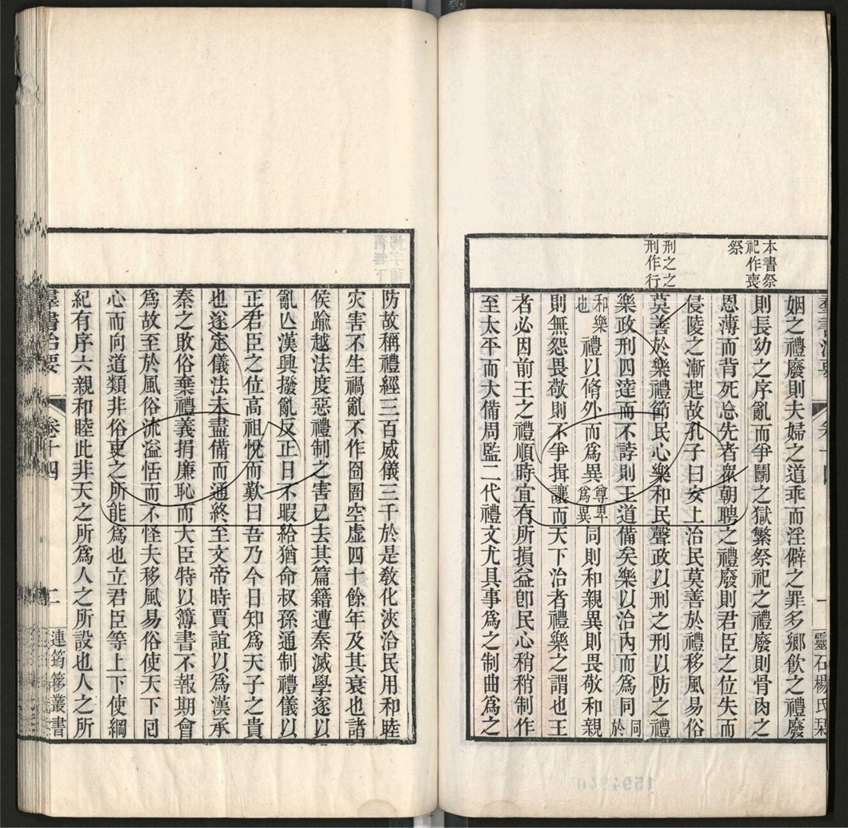 羣書治要
卷十四
一
靈石楊氏栞
本書祭
祀作喪
祭
刑之之
刑作行
姻之禮廢則夫婦之道乖而淫僻之罪多鄉飲之禮廢
則長幼之序亂而爭鬭之獄繁祭祀之禮廢則骨肉之
恩薄而背死忘先者衆朝聘之禮廢則君臣之位失而
侵陵之漸起故孔子曰安上治民莫善於禮移風易俗
莫善於樂禮節民心樂和民聲政以刑之刑以防之禮
樂政刑四達而不誖則王道備矣樂以治內而爲同同於
和樂也禮以脩外而爲異尊卑爲異同則和親異則畏敬和親
則無怨畏敬則不爭揖讓而天下治者禮樂之謂也王
者必因前王之禮順時宜有所損益卽民心稍稍制作
至太平而大備周監二代禮文尤具事爲之制曲爲之
防故稱禮經三百威儀三千於是敎化浹洽民用和睦
灾害不生禍亂不作囹圄空虛四十餘年及其衰也諸
侯踰越法度惡禮制之害已去其篇籍遭秦滅學遂以
亂亾漢興撥亂反正日不暇給猶命叔孫通制禮儀以
正君臣之位高祖悅而歎曰吾乃今日知爲天子之貴
也遂定儀法未盡備而通終至文帝時賈誼以爲漢承
秦之敗俗棄禮義捐廉恥而大臣特以簿書不報期會
爲故至於風俗流溢恬而不怪夫移風易俗使天下囘
心而向道類非俗吏之所能爲也立君臣等上下使綱
紀有序六親和睦此非天之所爲人之所設也人之所
羣書治要
卷十四
二
連筠簃叢書